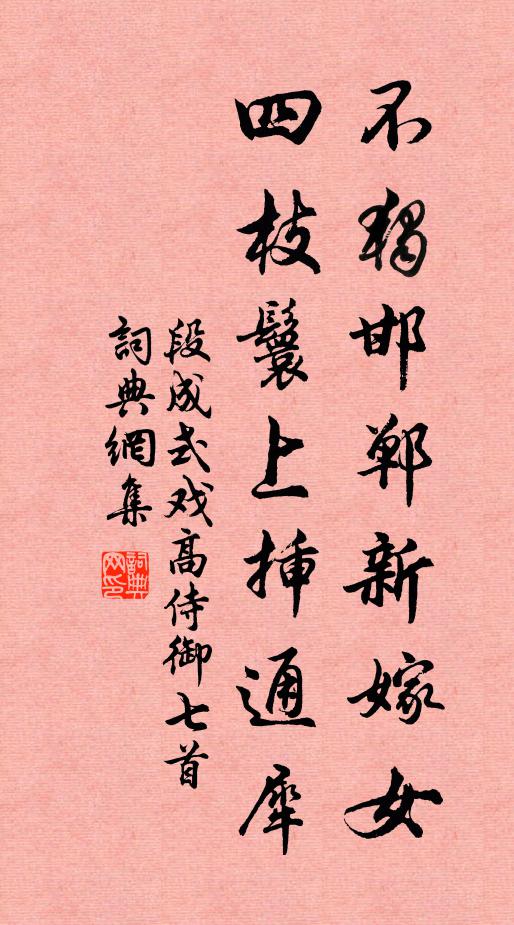 不獨邯鄲新嫁女
四枝鬟上插通犀
段成式戏高侍御七首
詞典網集
詞典
网印